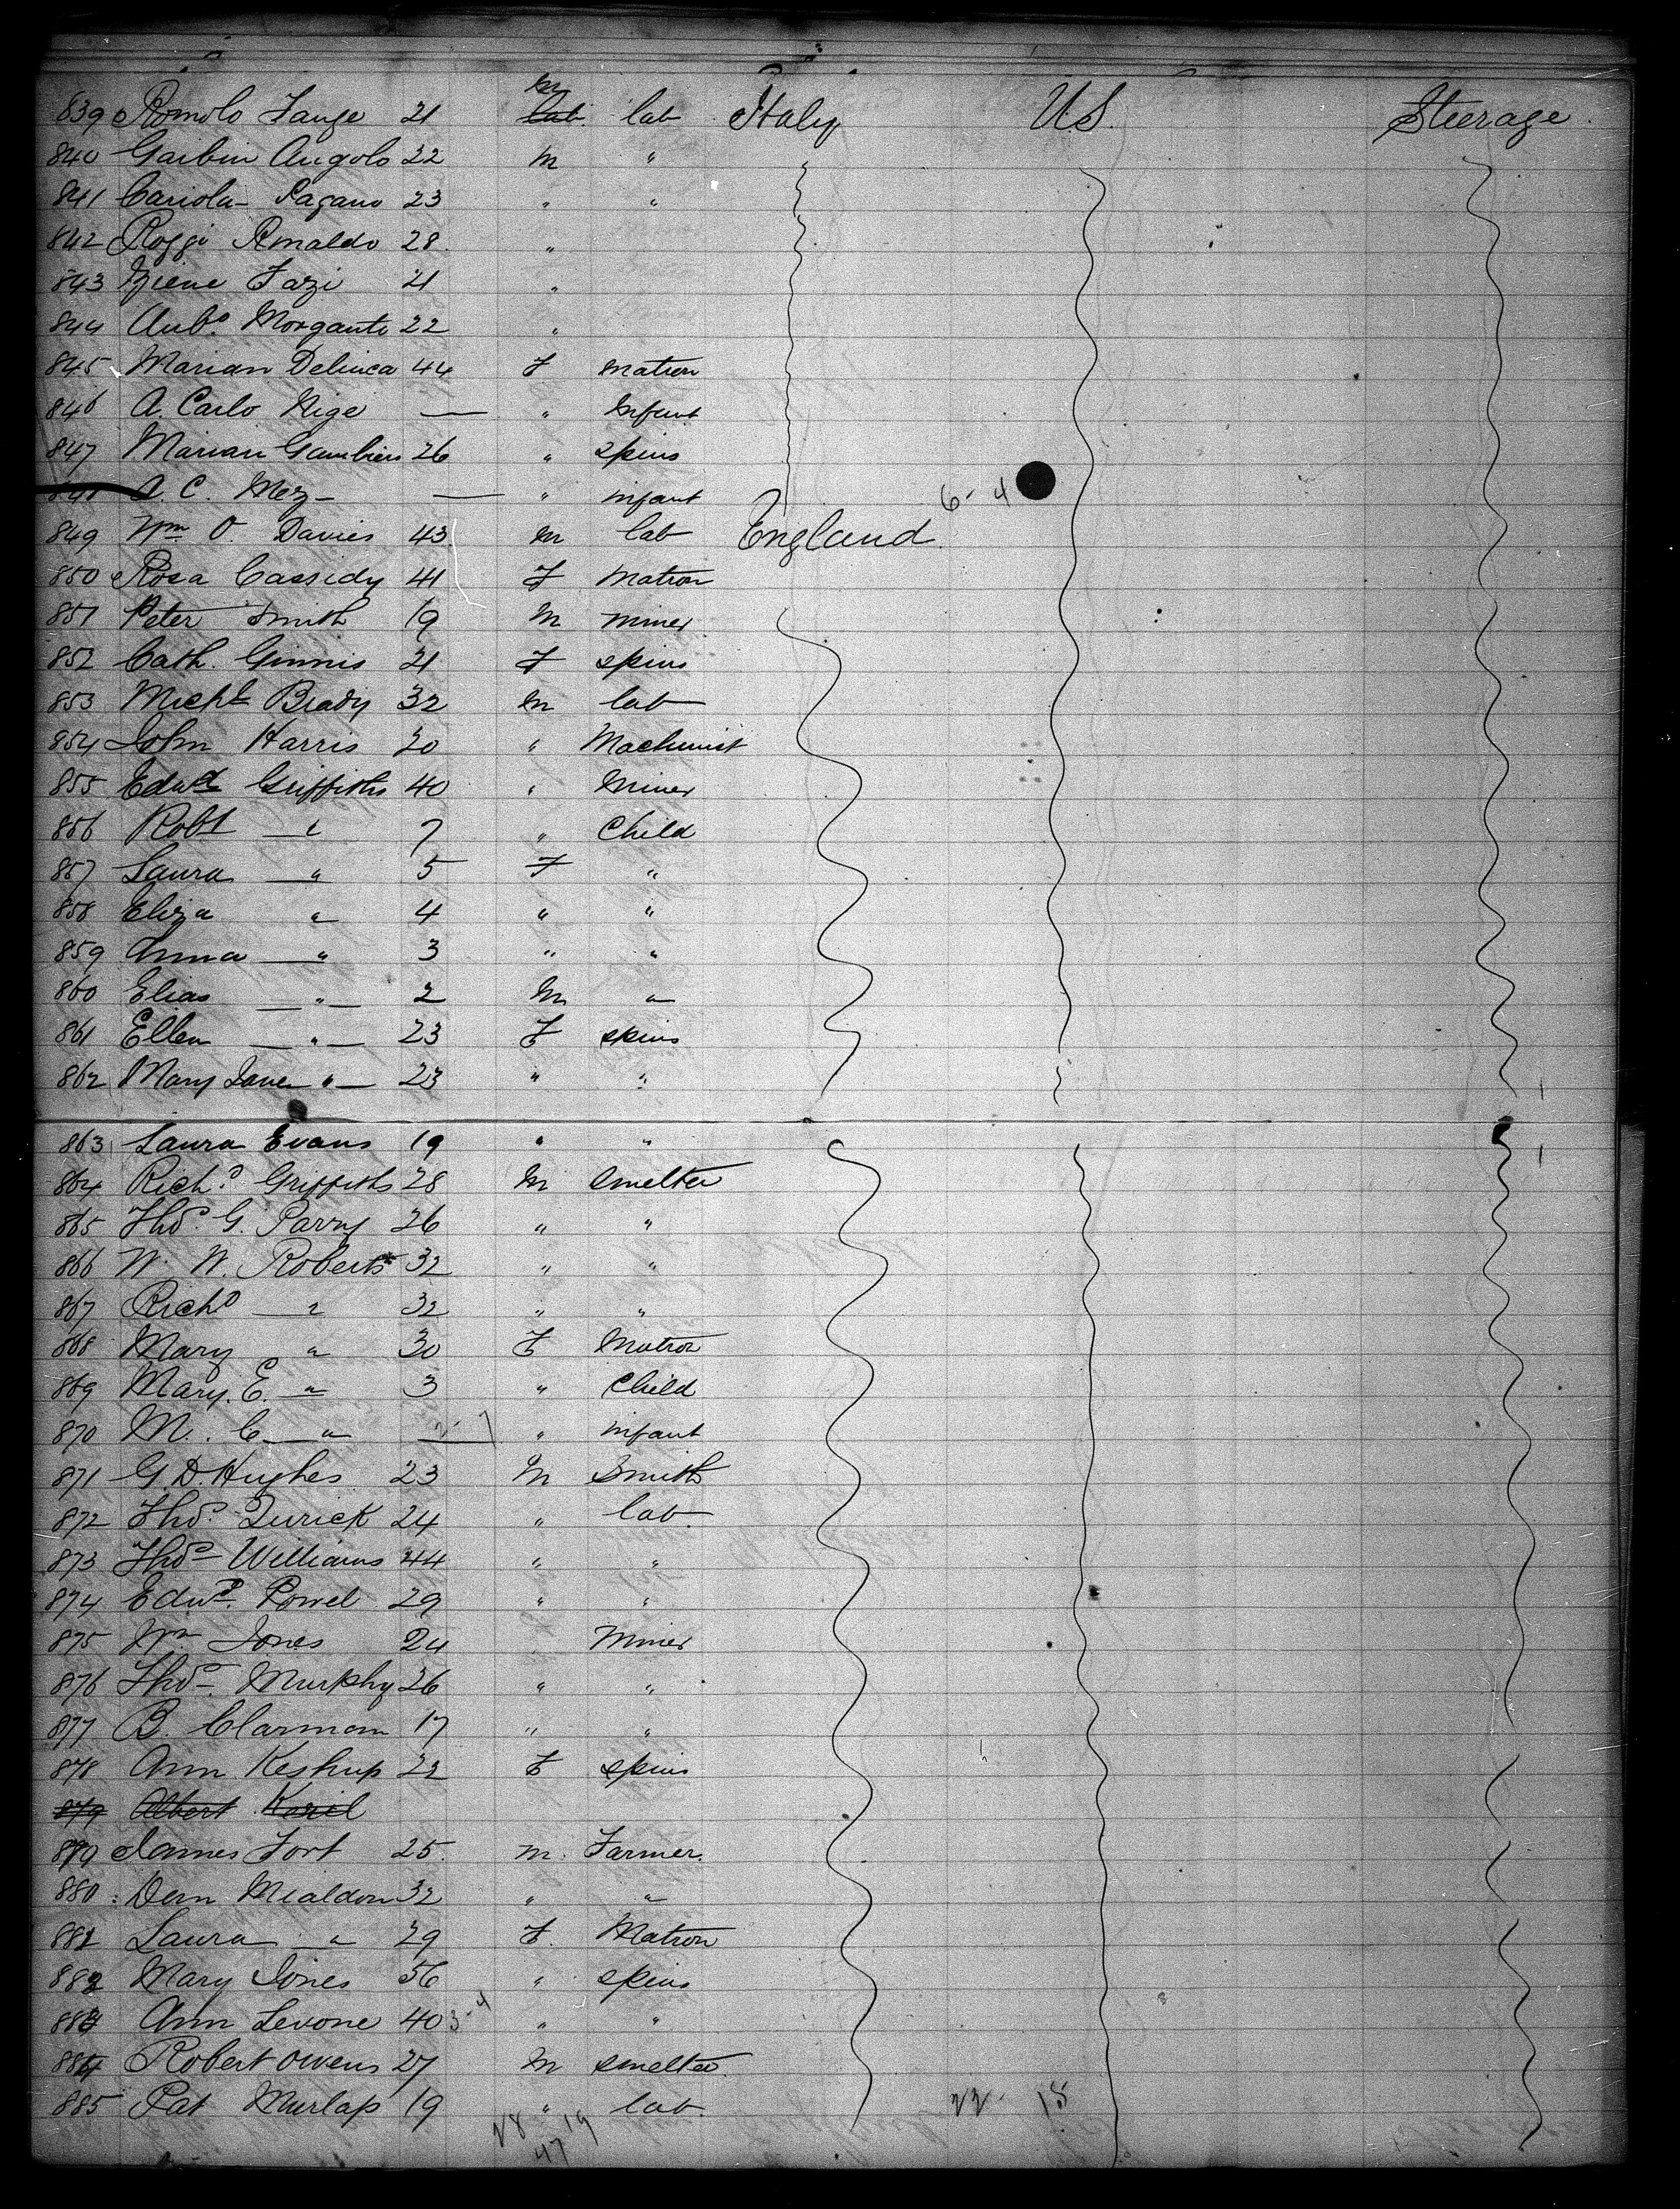 839 Romolo Fange 21 m lab. lab Italy U.S. Steerage
840 Garbin Angolo 22 m "
841 Cariola Pagano 23 " "
842 Poggi Rinaldo 28 "
843 Fazi 21 "
844 Aubo. Morganti 22 "
845 Marian Delinca 44 F Matron
846 A. Carlo Nige — " Infant
847 Marian Gambien 26 " spins
848 A. C. Mez — " infant 6-4
849 Wm O. Davies 43 m lab England
850 Rosa Cassidy 41 F Matron
851 Peter Smith 19 m miner
852 Cath. Ginnis 21 F spins
853 Michl Brady 32 m lab
854 John Harris 20 " Machinist
855 Edwd Griffiths 40 " Miner
856 Robt " 7 " Child
857 Laura " 5 F "
858 Eliza " 4 " "
859 Anna " 3 " "
860 Elias " 2 m "
861 Ellen " 23 F spins
862 Mary Jane " 23 " "
863 Laura Evans 19 " "
864 Richd Griffiths 28 m Smelter
865 Thos. G. Parry 26 " "
866 W. W. Roberts 32 " "
867 Richd " 32 " "
868 Mary " 30 F Matron
869 Mary. E. " 3 " Child
870 M. C " — " infant
871 G. D. Hughes 23 m Smith
872 Thos. Turick 24 " lab.
873 Thos Williams 44 " "
874 Edwd. Powel 29 " "
875 Wm Jones 24 " Miner
876 Thos. Murphy 26 " "
877 B. Clarmon 17 " "
878 Ann Keshup 22 F spins
879 Albert Karil
879 James Fort 25 m. Farmer.
880 Dem Mialdon 32 " "
881 Laura " 29 F. Matron
882 Mary Jones 56 " spins
883 Ann Levone 40 3-4 " "
884 Robert Owens 27 m smelter.
885 Pat Murlap 19 " lab. 22- 15
28 19
47